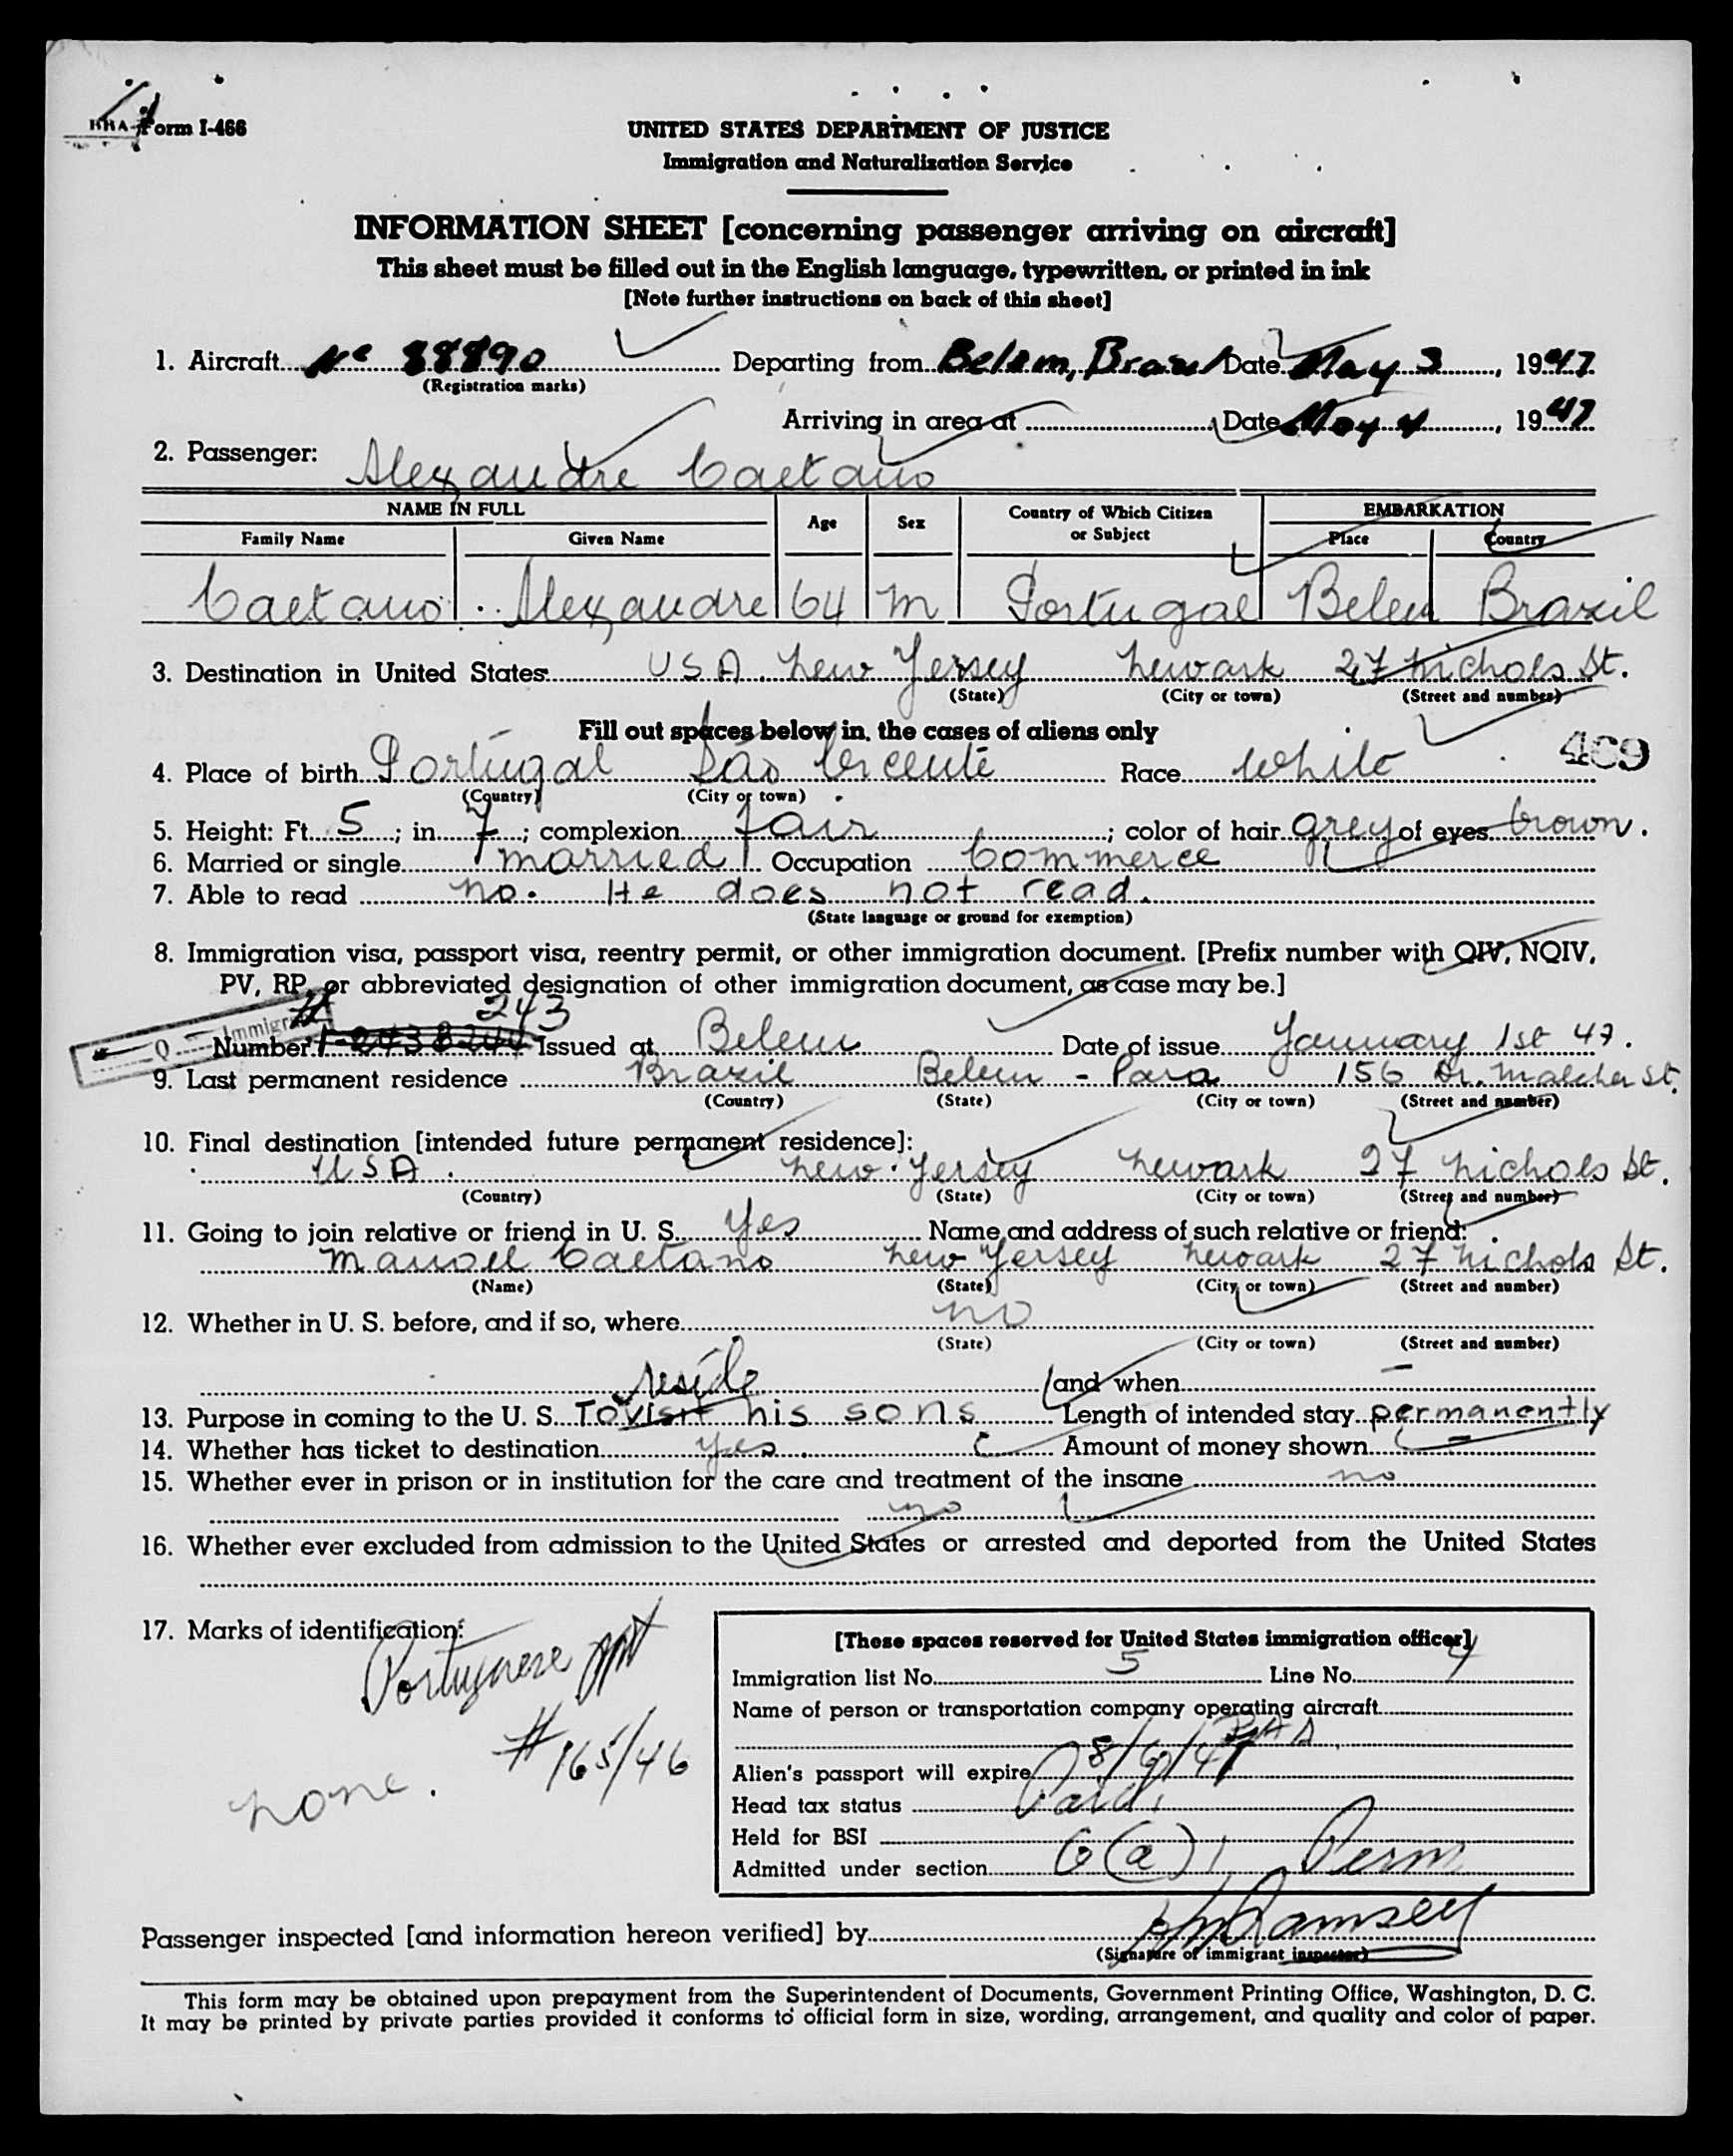 Form I-466
UNITED STATES DEPARTMENT OF JUSTICE
Immigration and Naturalization Service
INFORMATION SHEET [concerning passenger arriving on aircraft]
This sheet must be filled out in the English language, typewritten, or printed in ink
[Note further instructions on back of this sheet]
1. Aircraft Nc 88890 Departing from Belem, Brazil Date May 3, 1947
(Registration marks)
Arriving in area at Date May 4, 1947
2. Passenger: Alexandre Caetano
NAME IN FULL Age Sex Country of Which Citizen or Subject EMBARKATION
Family Name Given Name Place Country
Caetano Alexandre 64 M Portugal Belem Brazil
3. Destination in United States USA. New Jersey Newark 27 Nichols St.
(State) (City or town) (Street and number)
Fill out spaces below in the cases of aliens only
469
4. Place of birth Portugal São Vicente Race White
(Country) (City or town)
5. Height: Ft. 5; in. 7; complexion fair; color of hair grey of eyes brown.
6. Married or single married Occupation Commerce
7. Able to read no. He does not read.
(State language or ground for exemption)
8. Immigration visa, passport visa, reentry permit, or other immigration document. [Prefix number with QIV, NQIV,
PV, RP, or abbreviated designation of other immigration document, as case may be.]
243
Number Issued at Belem Date of issue January 1st 47.
9. Last permanent residence Brazil Belem - Para 156 Dr. Malcher St.
(Country) (State) (City or town) (Street and number)
10. Final destination [intended future permanent residence]:
USA. New Jersey Newark 27 Nichols St.
(Country) (State) (City or town) (Street and number)
11. Going to join relative or friend in U. S. Yes Name and address of such relative or friend:
Manoel Caetano New Jersey Newark 27 Nichols St.
(Name) (State) (City or town) (Street and number)
12. Whether in U. S. before, and if so, where no
(State) (City or town) (Street and number)
and when -
reside
13. Purpose in coming to the U. S. To visit his sons Length of intended stay permanently
14. Whether has ticket to destination yes. Amount of money shown -
15. Whether ever in prison or in institution for the care and treatment of the insane no
no
16. Whether ever excluded from admission to the United States or arrested and deported from the United States
17. Marks of identification:
Portuguese ppt
#165/46
none.
[These spaces reserved for United States immigration officer]
Immigration list No. 5 Line No. 4
Name of person or transportation company operating aircraft
Alien's passport will expire 8/6/47
Head tax status Paid
Held for BSI
Admitted under section 6(a) Perm
Passenger inspected [and information hereon verified] by Ramsey
(Signature of immigrant inspector)
This form may be obtained upon prepayment from the Superintendent of Documents, Government Printing Office, Washington, D. C.
It may be printed by private parties provided it conforms to official form in size, wording, arrangement, and quality and color of paper.